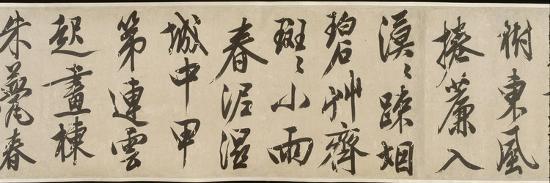 樹東風
捲簾入
漠〻踈烟
碧艸齊
斑〻小雨
春泥湿
城中甲
第連雲
起畫棟
朱甍春